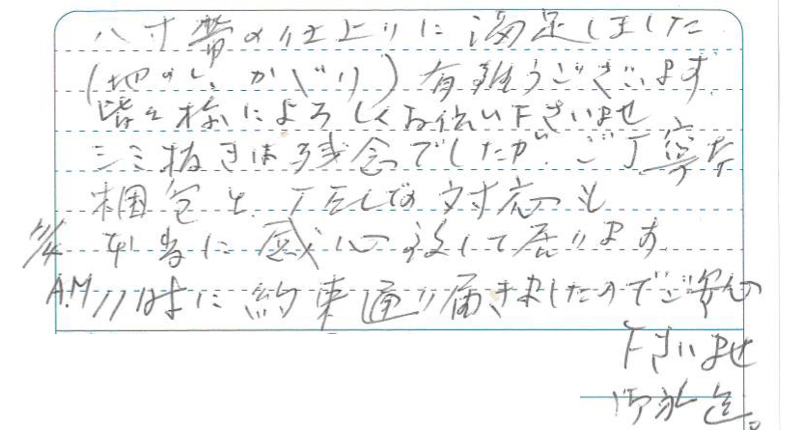 八寸帯の仕上りに満足しました
(地のし、かがり)有難うございます。
皆々様によろしくお伝い下さいませ
シミ抜きは残念でしたが、ご丁寧な
梱包と 対応も
本当に感心致して居ります。
A.M 11時に約束通り届きましたのでご安心
下さいませ
御礼迄。